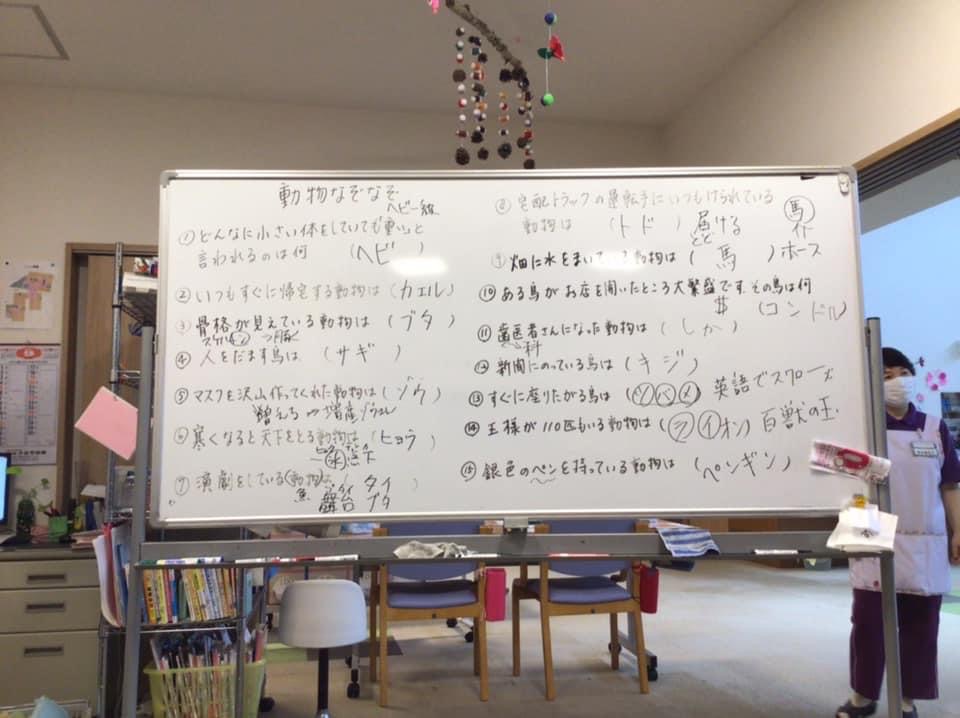 動物なぞなぞ
ヘビー級
①どんなに小さい体をしていても重いと
言われるのは何 (ヘビー)
②いつもすぐに帰宅する動物は(カエル)
③骨格が見えている動物は(ブタ)
④人をだます鳥は (サギ)
⑤マスクを沢山作ってくれた動物は(ゾウ)
増える 増産
⑥寒くなると天下をとる動物は(ヒョウ)
⑦演劇をしている(動物)は タイ
魚 舞台 ブタ
⑧宅配トラックの運転手にいつもけられている
動物は (トド) 届ける
とど
⑨畑に水をまいている動物は (馬) ホース
⑩ある鳥がお店を開いたところ大繁盛です。その鳥は何
$ (コンドル)
⑪歯医者さんになった動物は (しか)
科
⑫新聞にのっている鳥は (キジ)
⑬すぐに座りたがる鳥は (ツバメ) 英語でスワローズ
⑭王様が110匹もいる動物は (ライオン) 百獣の王
⑮銀色のペンを持っている動物は (ペンギン)